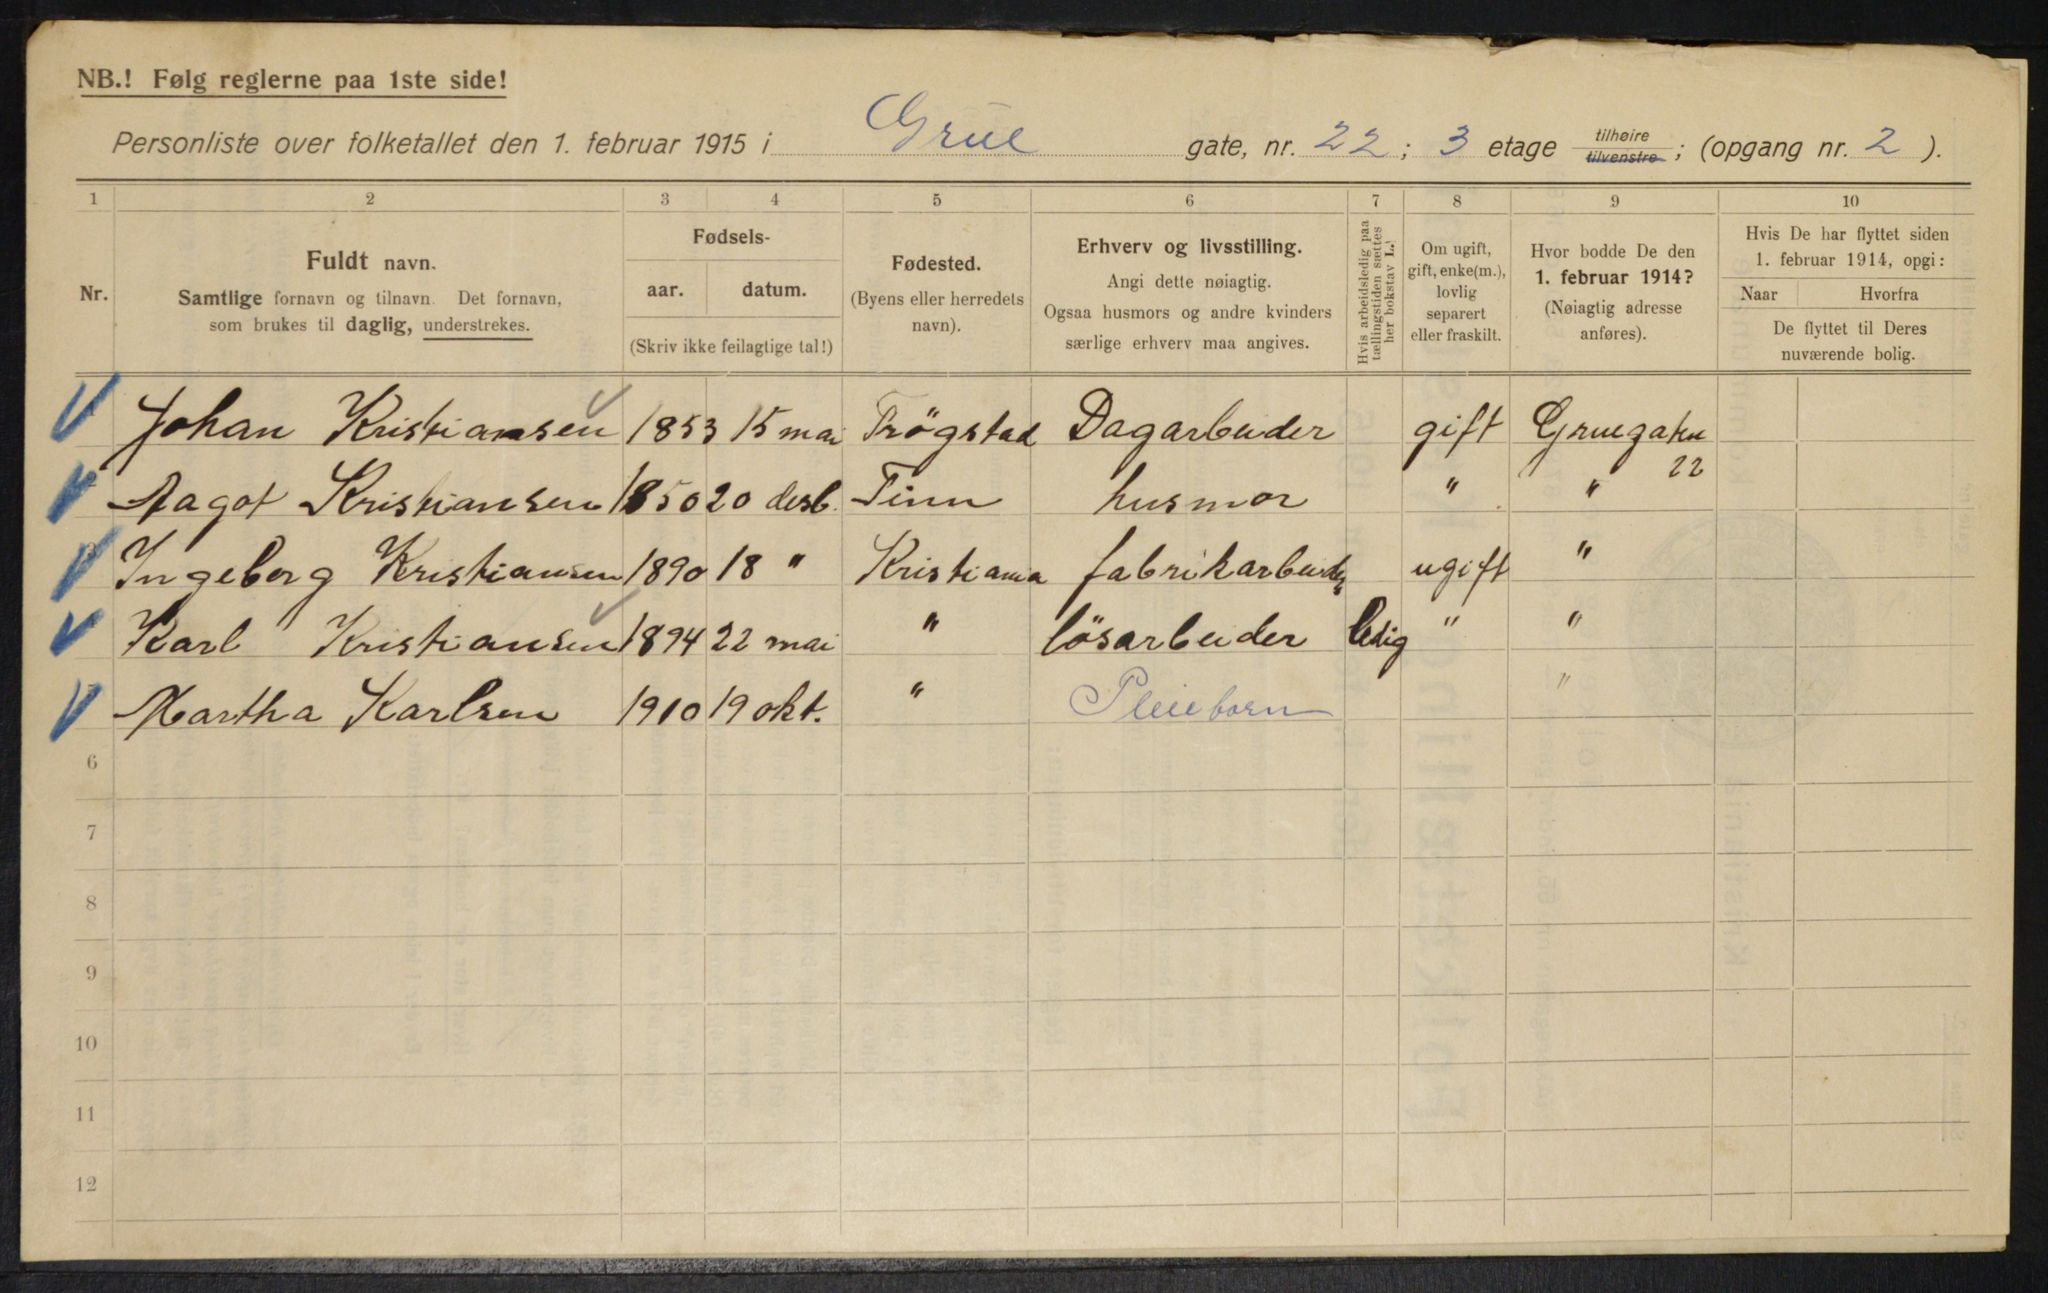 NB.! Følg reglerne paa 1ste side!
Personliste over folketallet den 1. februar 1915 i Grue gate, nr. 22 ; 3 etage tilhøire tilvenstre ; (opgang nr. 2 ).
1 2 3 4 5 6 7 8 9 10
Nr.
Fuldt navn.
Samtlige fornavn og tilnavn. Det fornavn,
som brukes til daglig, understrekes.
Fødsels-
aar. datum.
(Skriv ikke feilagtige tal!)
Fødested.
(Byens eller herredets
navn).
Erhverv og livsstilling.
Angi dette nøiagtig.
Ogsaa husmors og andre kvinders
særlige erhverv maa angives.
Hvis arbeidsledig paa
tællingstiden sættes
her bokstav L.
Om ugift,
gift, enke(m.),
lovlig
separert
eller fraskilt.
Hvor bodde De den
1. februar 1914?
(Nøiagtig adresse
anføres).
Hvis De har flyttet siden
1. februar 1914, opgi:
Naar Hvorfra
De flyttet til Deres
nuværende bolig.
Johan Kristiansen 1853 15 mai Trögstad Dagarbeider gift Gruegaten 22
Aagot Kristiansen 1850 20 desb. Tinn husmor " "
Ingeborg Kristiansen 1890 18 " Kristiania fabrikarbeider ugift "
Karl Kristiansen 1894 22 mai " lösarbeider ledig " "
Martha Karlsen 1910 19 okt. " Pleiebarn "
6
7
8
9
10
11
12